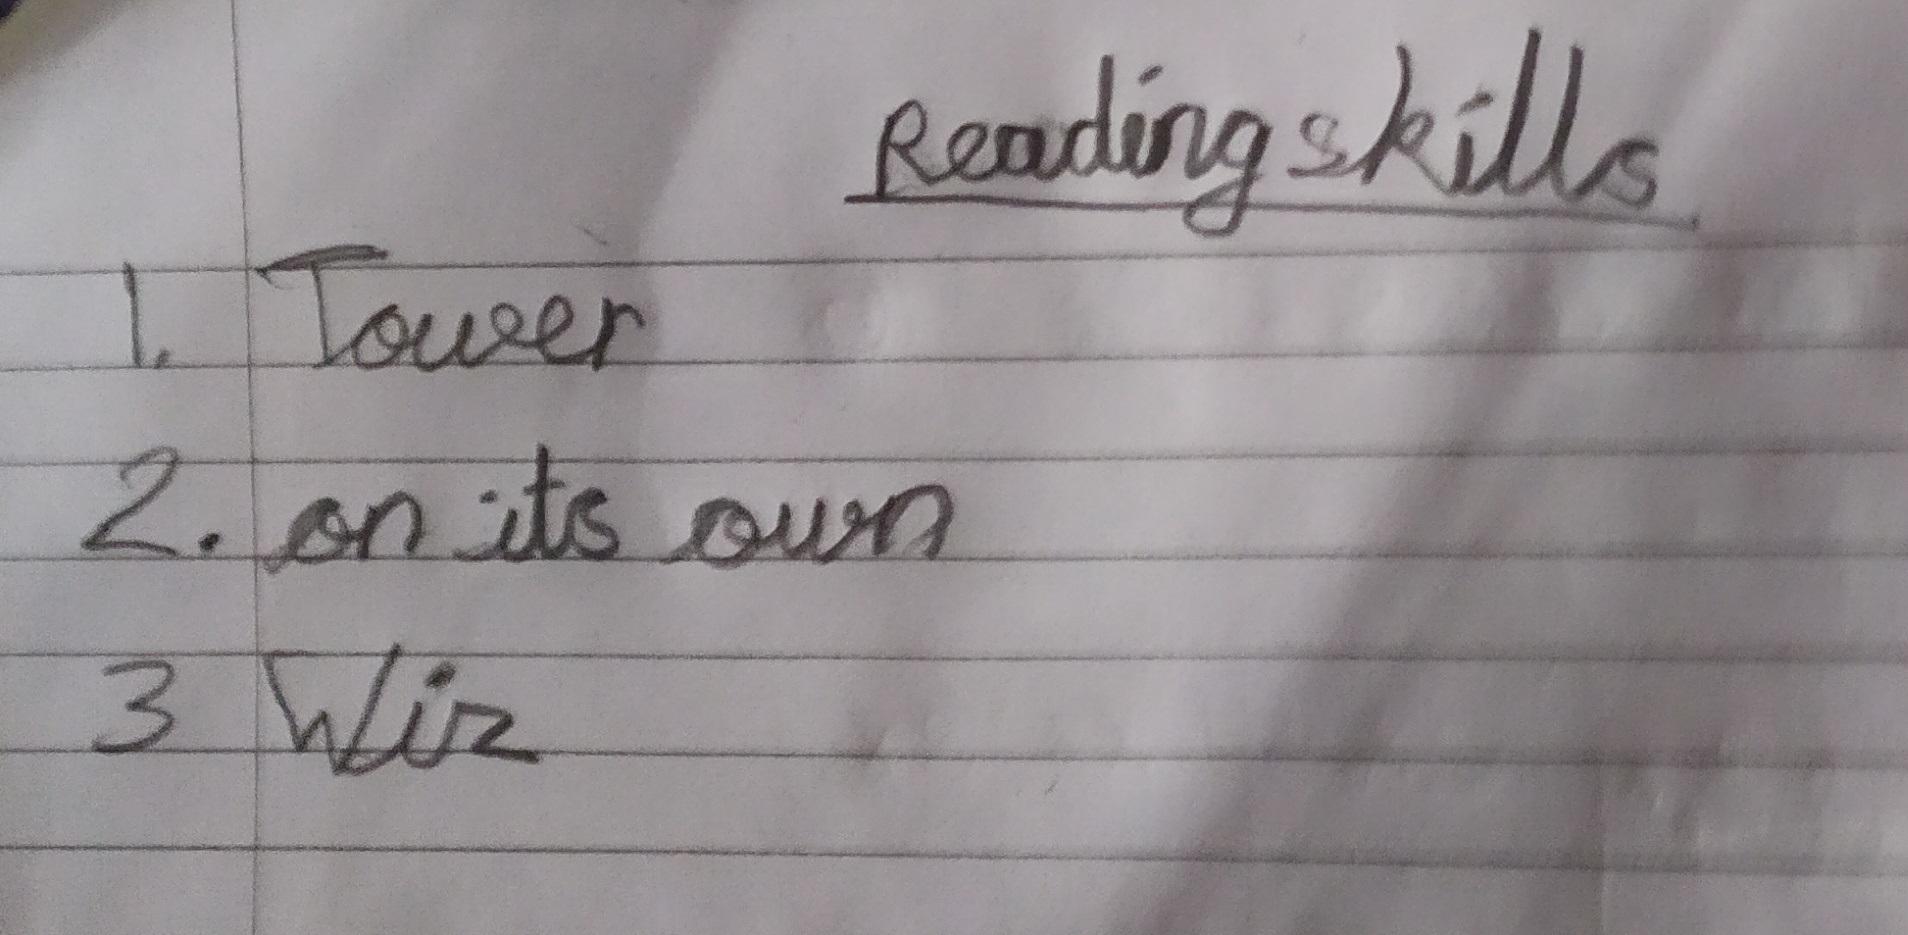 Reading skills
1. Tower
2. on its own
3 Wiz